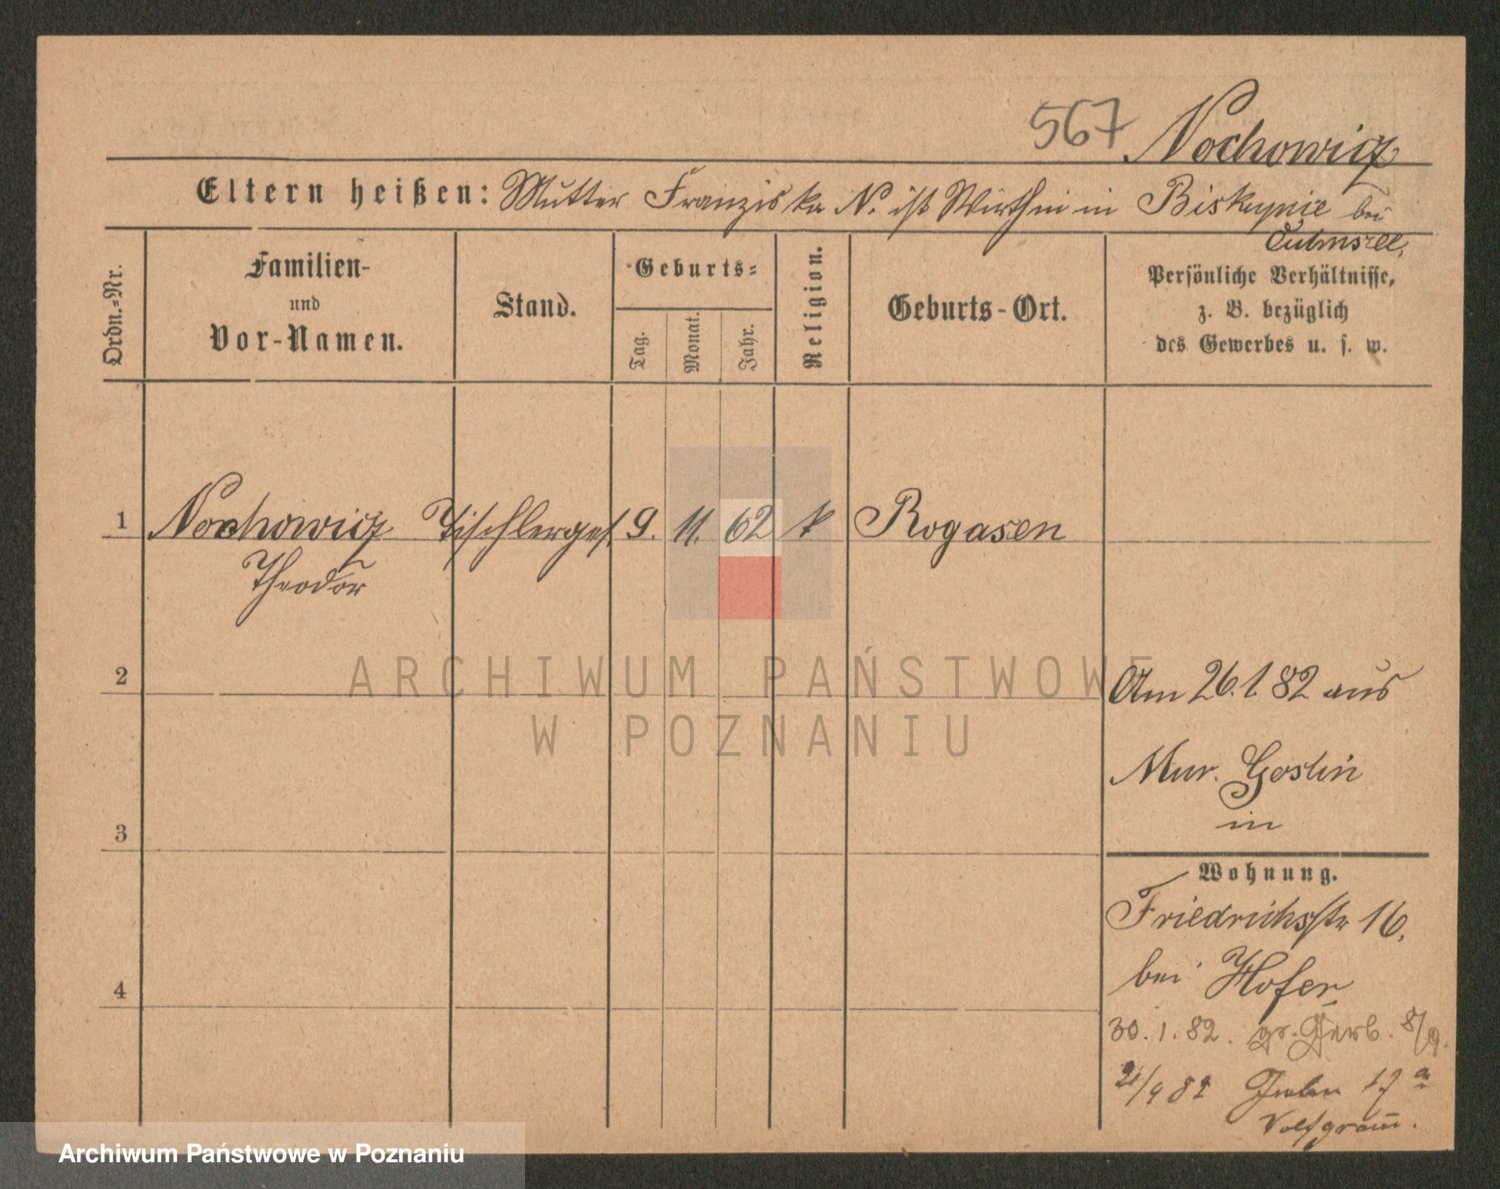 567 Nochowicz
Eltern heißen: Mutter Franziska N. ist Wirthin in Biskupie bei
Culmsee.
Ordn.-Nr.
Familien-
und
Vor-Namen.
Stand.
Geburts-
Tag.
Monat.
Jahr.
Religion.
Geburts-Ort.
Persönliche Verhältnisse,
z. B. bezüglich
des Gewerbes u. s. w.
1 Nochowicz Tischlerges. 9. 11. 62 k Rogasen
Theodor
2
Am 26.1.82 aus
Mur. Goslin
in
3
Wohnung.
Friedrichstr 16.
bei Hofer
4
30.1.82. gr. Gerb. 8/9.
2/9 82 17a
Wolfgram.
ARCHIWUM PAŃSTWOWE
W POZNANIU
Archiwum Państwowe w Poznaniu